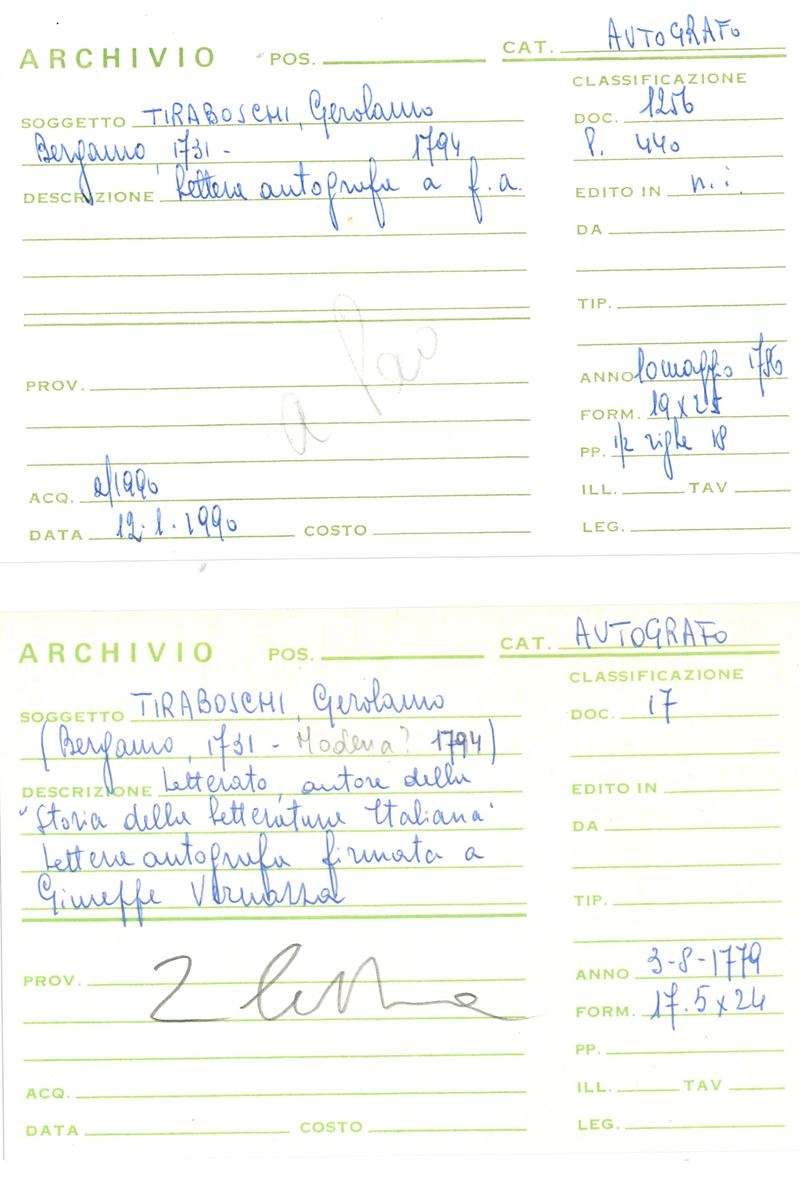 ARCHIVIO POS. CAT. AUTOGRAFO
CLASSIFICAZIONE
SOGGETTO TIRABOSCHI, Gerolamo DOC. 1256
Bergamo, 1731 - 1794 P. 440
DESCRIZIONE Lettera autografa a f.a. EDITO IN n.i.
DA
TIP.
PROV. ANNO Lomaffio 1786
a
FORM. 19 x 25
PP. 1/2 righe 18
ACQ. 2/1990 ILL. TAV
DATA 12.1.1990 COSTO LEG.
ARCHIVIO POS. CAT. AUTOGRAFO
CLASSIFICAZIONE
SOGGETTO TIRABOSCHI, Gerolamo DOC. 17
(Bergamo, 1731 - Modena? 1794)
DESCRIZIONE Letterato, autore della EDITO IN
"Storia della Letteratura Italiana" DA
Lettera autografa firmata a
Giuseppe Vernazza TIP.
PROV. 2 lettere ANNO 3-8-1779
FORM. 17.5 x 24
PP.
ACQ. ILL. TAV
DATA COSTO LEG.